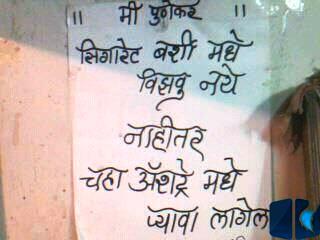 ॥ मी पुणेकर ॥
सिगारेट बशी मधे
विझवु नये
नाहीतर
चहा ॲशट्रे मधे
प्यावा लागेल